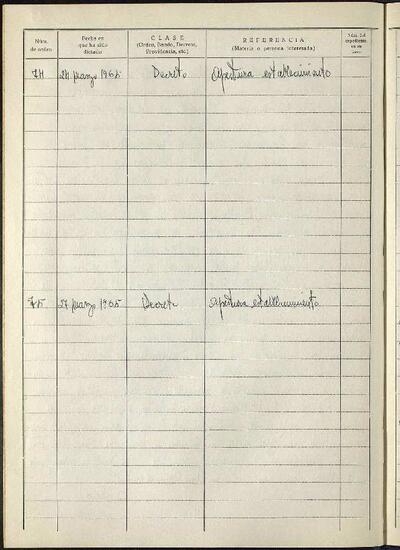 Núm. de orden
Fecha en que ha sido dictado
CLASE
(Orden, Bando, Decreto, Providencia, etc.)
REFERENCIA
(Materia o persona interesada)
Núm. del expediente en su caso
74 24 marzo 1965 Decreto Apertura establecimiento
75 27 marzo 1965 Decreto Apertura establecimiento